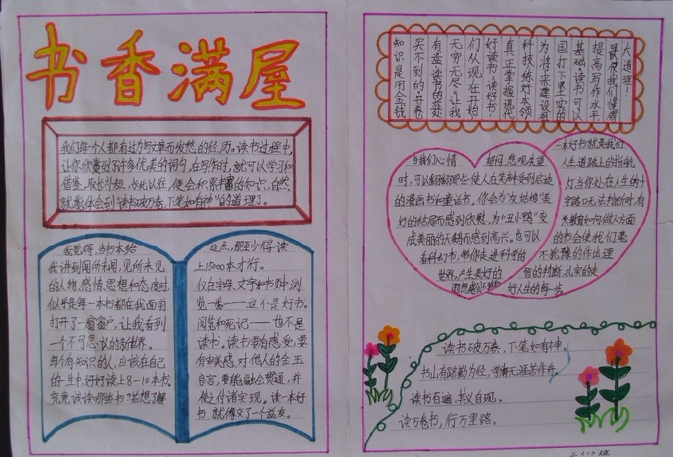 书香满屋
我们每个人都有过为写文章而发愁的经历。读书过程中,
让你欣赏到了许多优美的词句,在写作时,就可以学习和
借鉴,取长补短,长此以往,便会积累丰富的知识,自然
就能体会到"读书破万卷,下笔如有神"的道理了。
我觉得,当书本给
我讲到闻所未闻,见所未见
的人物、感情、思想和态度时
似乎是每一本书都在我面前
打开了一扇窗户,让我看到
一个不可思议的新世界。
每个有知识的人,应该在自己
的一生中,好好读上8-10本书。
究竟该读哪些书
若想了解
这点,那至少得读
上15000本才行。
仅在字母、文字和书页中浏
览一番——这不是好书。
阅览和死记——也不是
读书。读书要有感受,要
有审美感,对他人的金玉
良言,要能融会贯通,并
使之付诸实现。读一本好
书,就像交了一个益友。
知识是用金钱
买不到的。开卷
有益,读书的益处
无穷无尽。让我
们从现在开始
好读书,读好书!
真正掌握现代
科技,练好本领
为将来建设祖
国打下坚实的
基础。读书可以
提高写作水平
使我们懂得
大道理!
当我们心情
郁闷、悲观失望
时,可以翻翻那些使人在笑声中受到启迪
的漫画书和童话书。你会为"灰姑娘"美
好的结局而感到欣慰,为"丑小鸭"变
成美丽的天鹅而感到高兴。也可以
看科幻书,带你走进科学的
世界,产生美好的
一本好书就是我们
人生道路上的指航
灯。当你处在人生的十
字路口无法判断时,有
关教育如何做人方面
的书会使我们毫
不犹豫的作出理
智的判断,扎实的走
好人生的每一步。
读书破万卷,下笔如有神。
书山有路勤为径,学海无涯苦作舟。
读书百遍,其义自现。
读万卷书,行万里路。